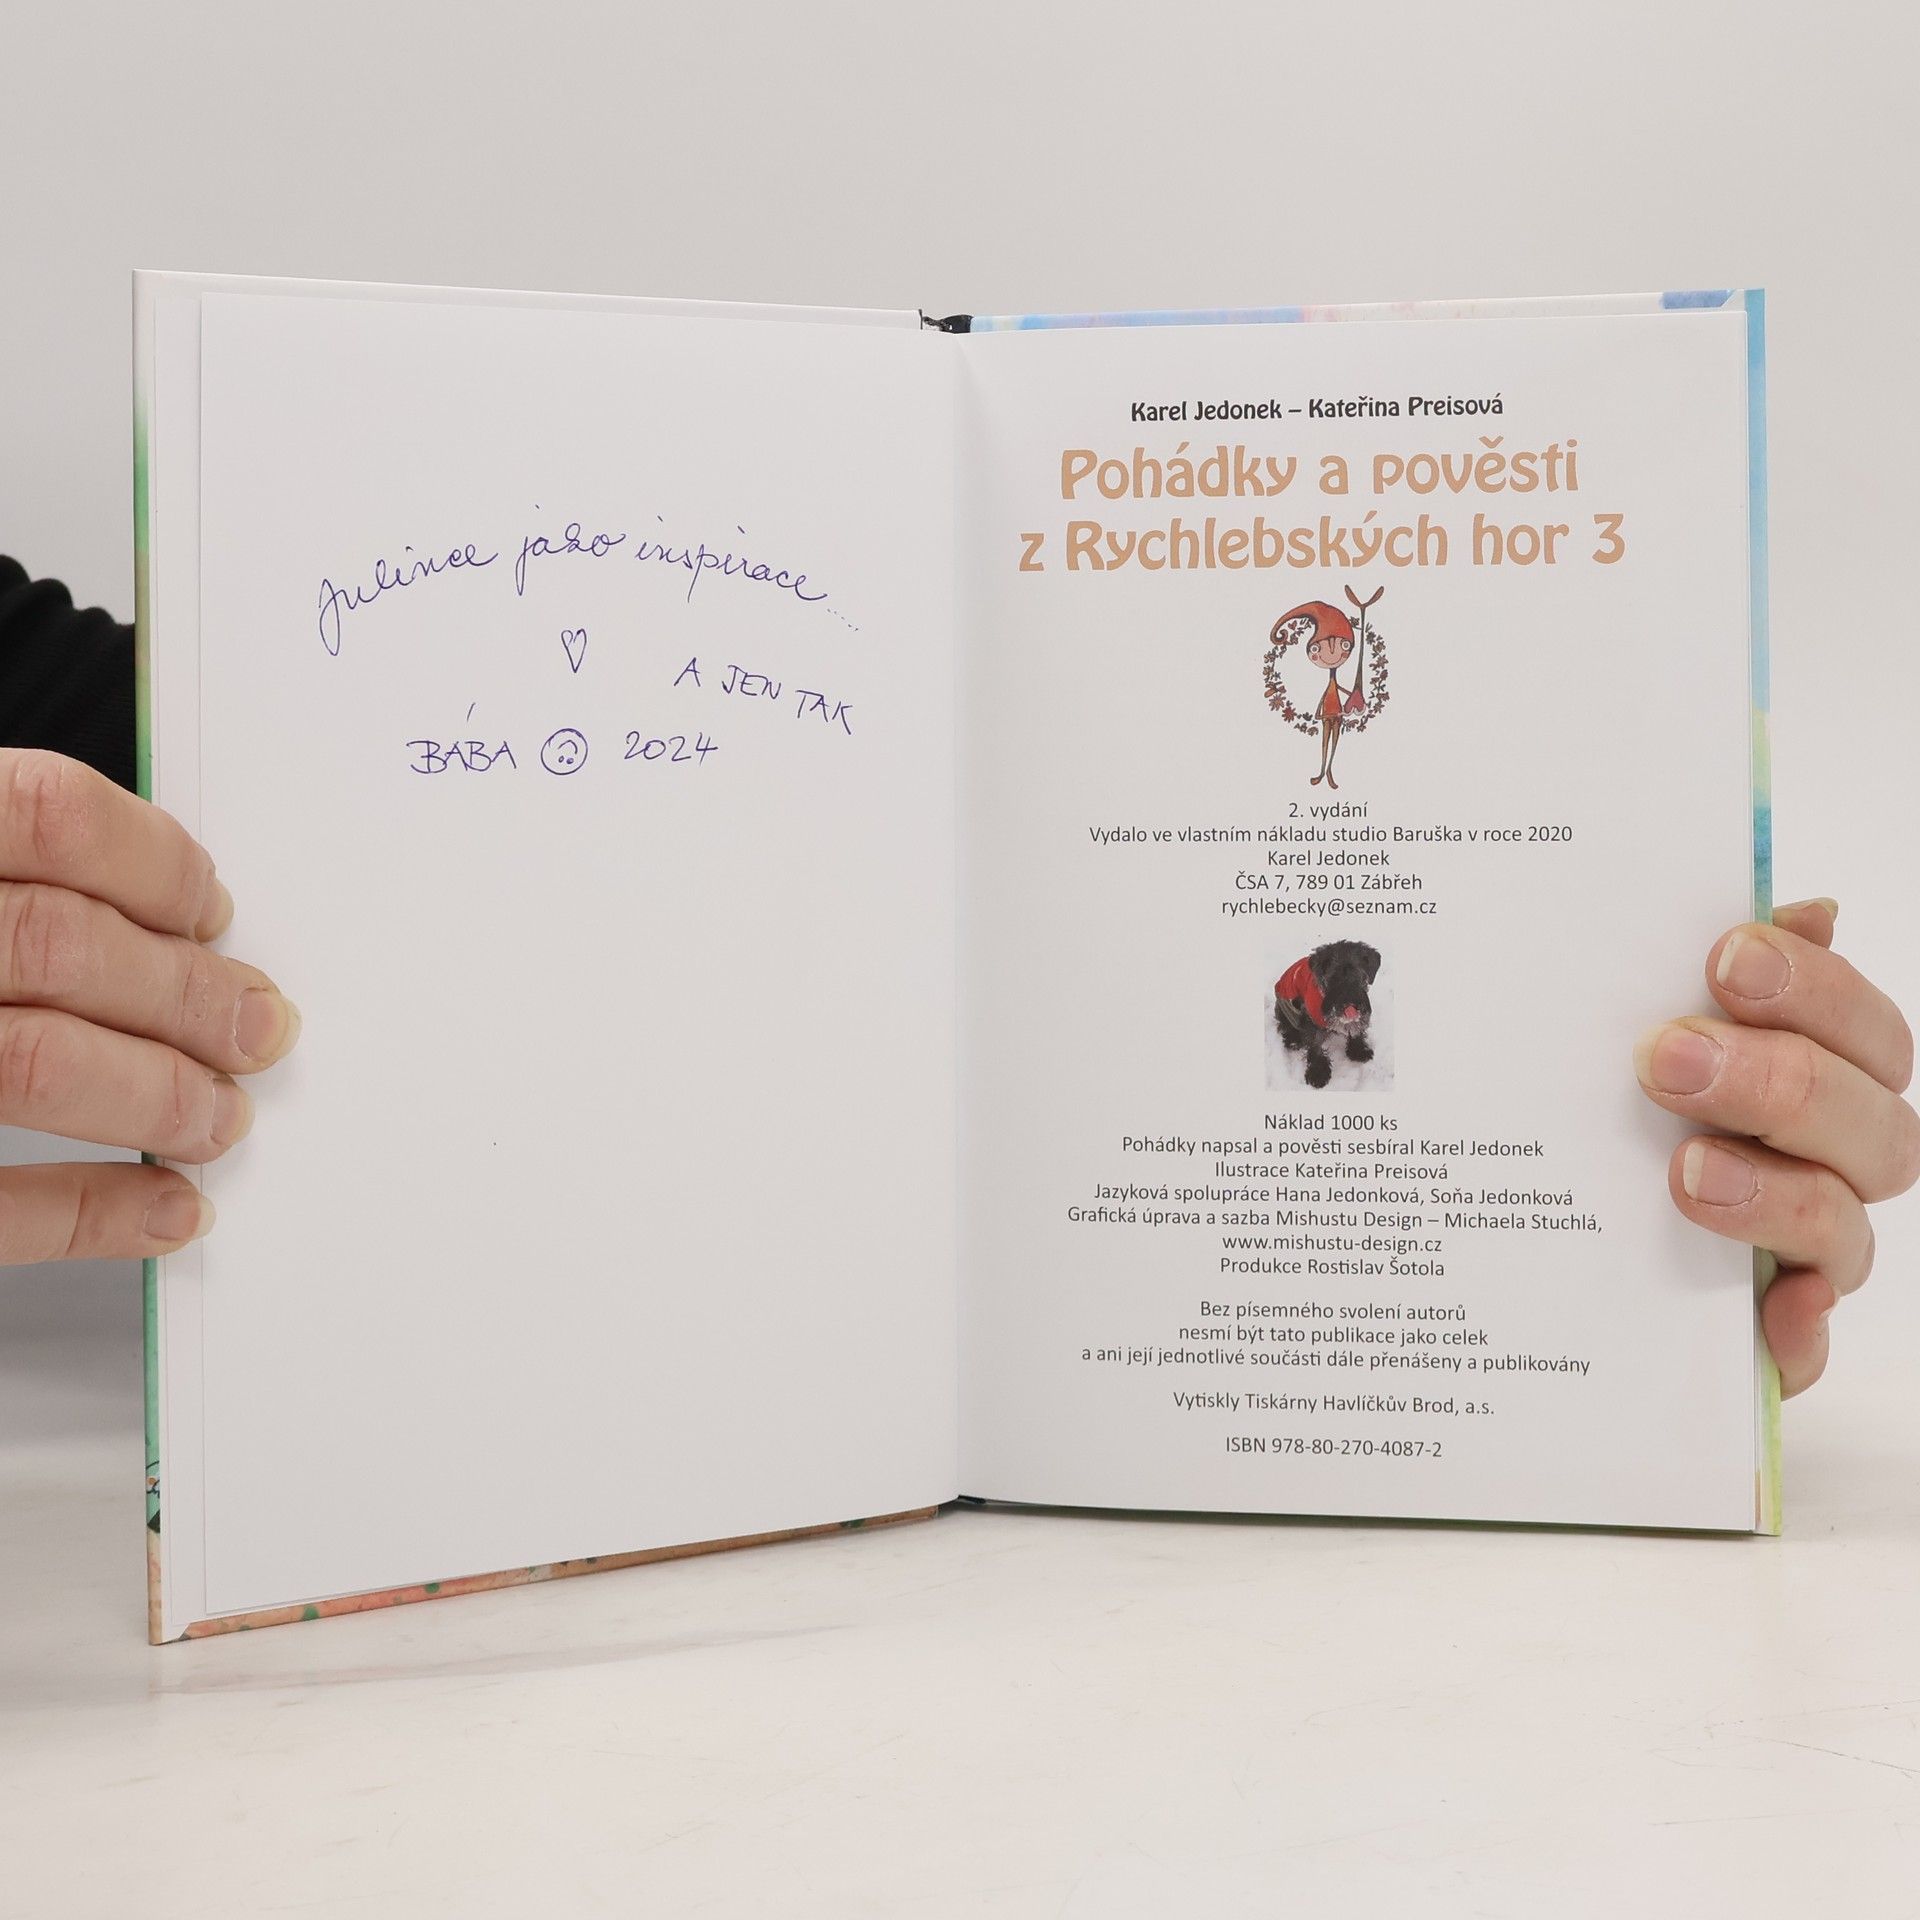 Julince jako inspirace.....
A JEN TAK
BÁBA 2024
Karel Jedonek – Kateřina Preisová
Pohádky a pověsti
z Rychlebských hor 3
2. vydání
Vydalo ve vlastním nákladu studio Baruška v roce 2020
Karel Jedonek
ČSA 7, 789 01 Zábřeh
rychlebecky@seznam.cz
Náklad 1000 ks
Pohádky napsal a pověsti sesbíral Karel Jedonek
Ilustrace Kateřina Preisová
Jazyková spolupráce Hana Jedonková, Soňa Jedonková
Grafická úprava a sazba Mishustu Design – Michaela Stuchlá,
www.mishustu-design.cz
Produkce Rostislav Šotola
Bez písemného svolení autorů
nesmí být tato publikace jako celek
a ani její jednotlivé součásti dále přenášeny a publikovány
Vytiskly Tiskárny Havlíčkův Brod, a.s.
ISBN 978-80-270-4087-2